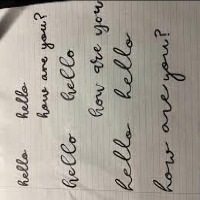 hello hello
how are you?
hello hello
how are you
hello hello
how are you?